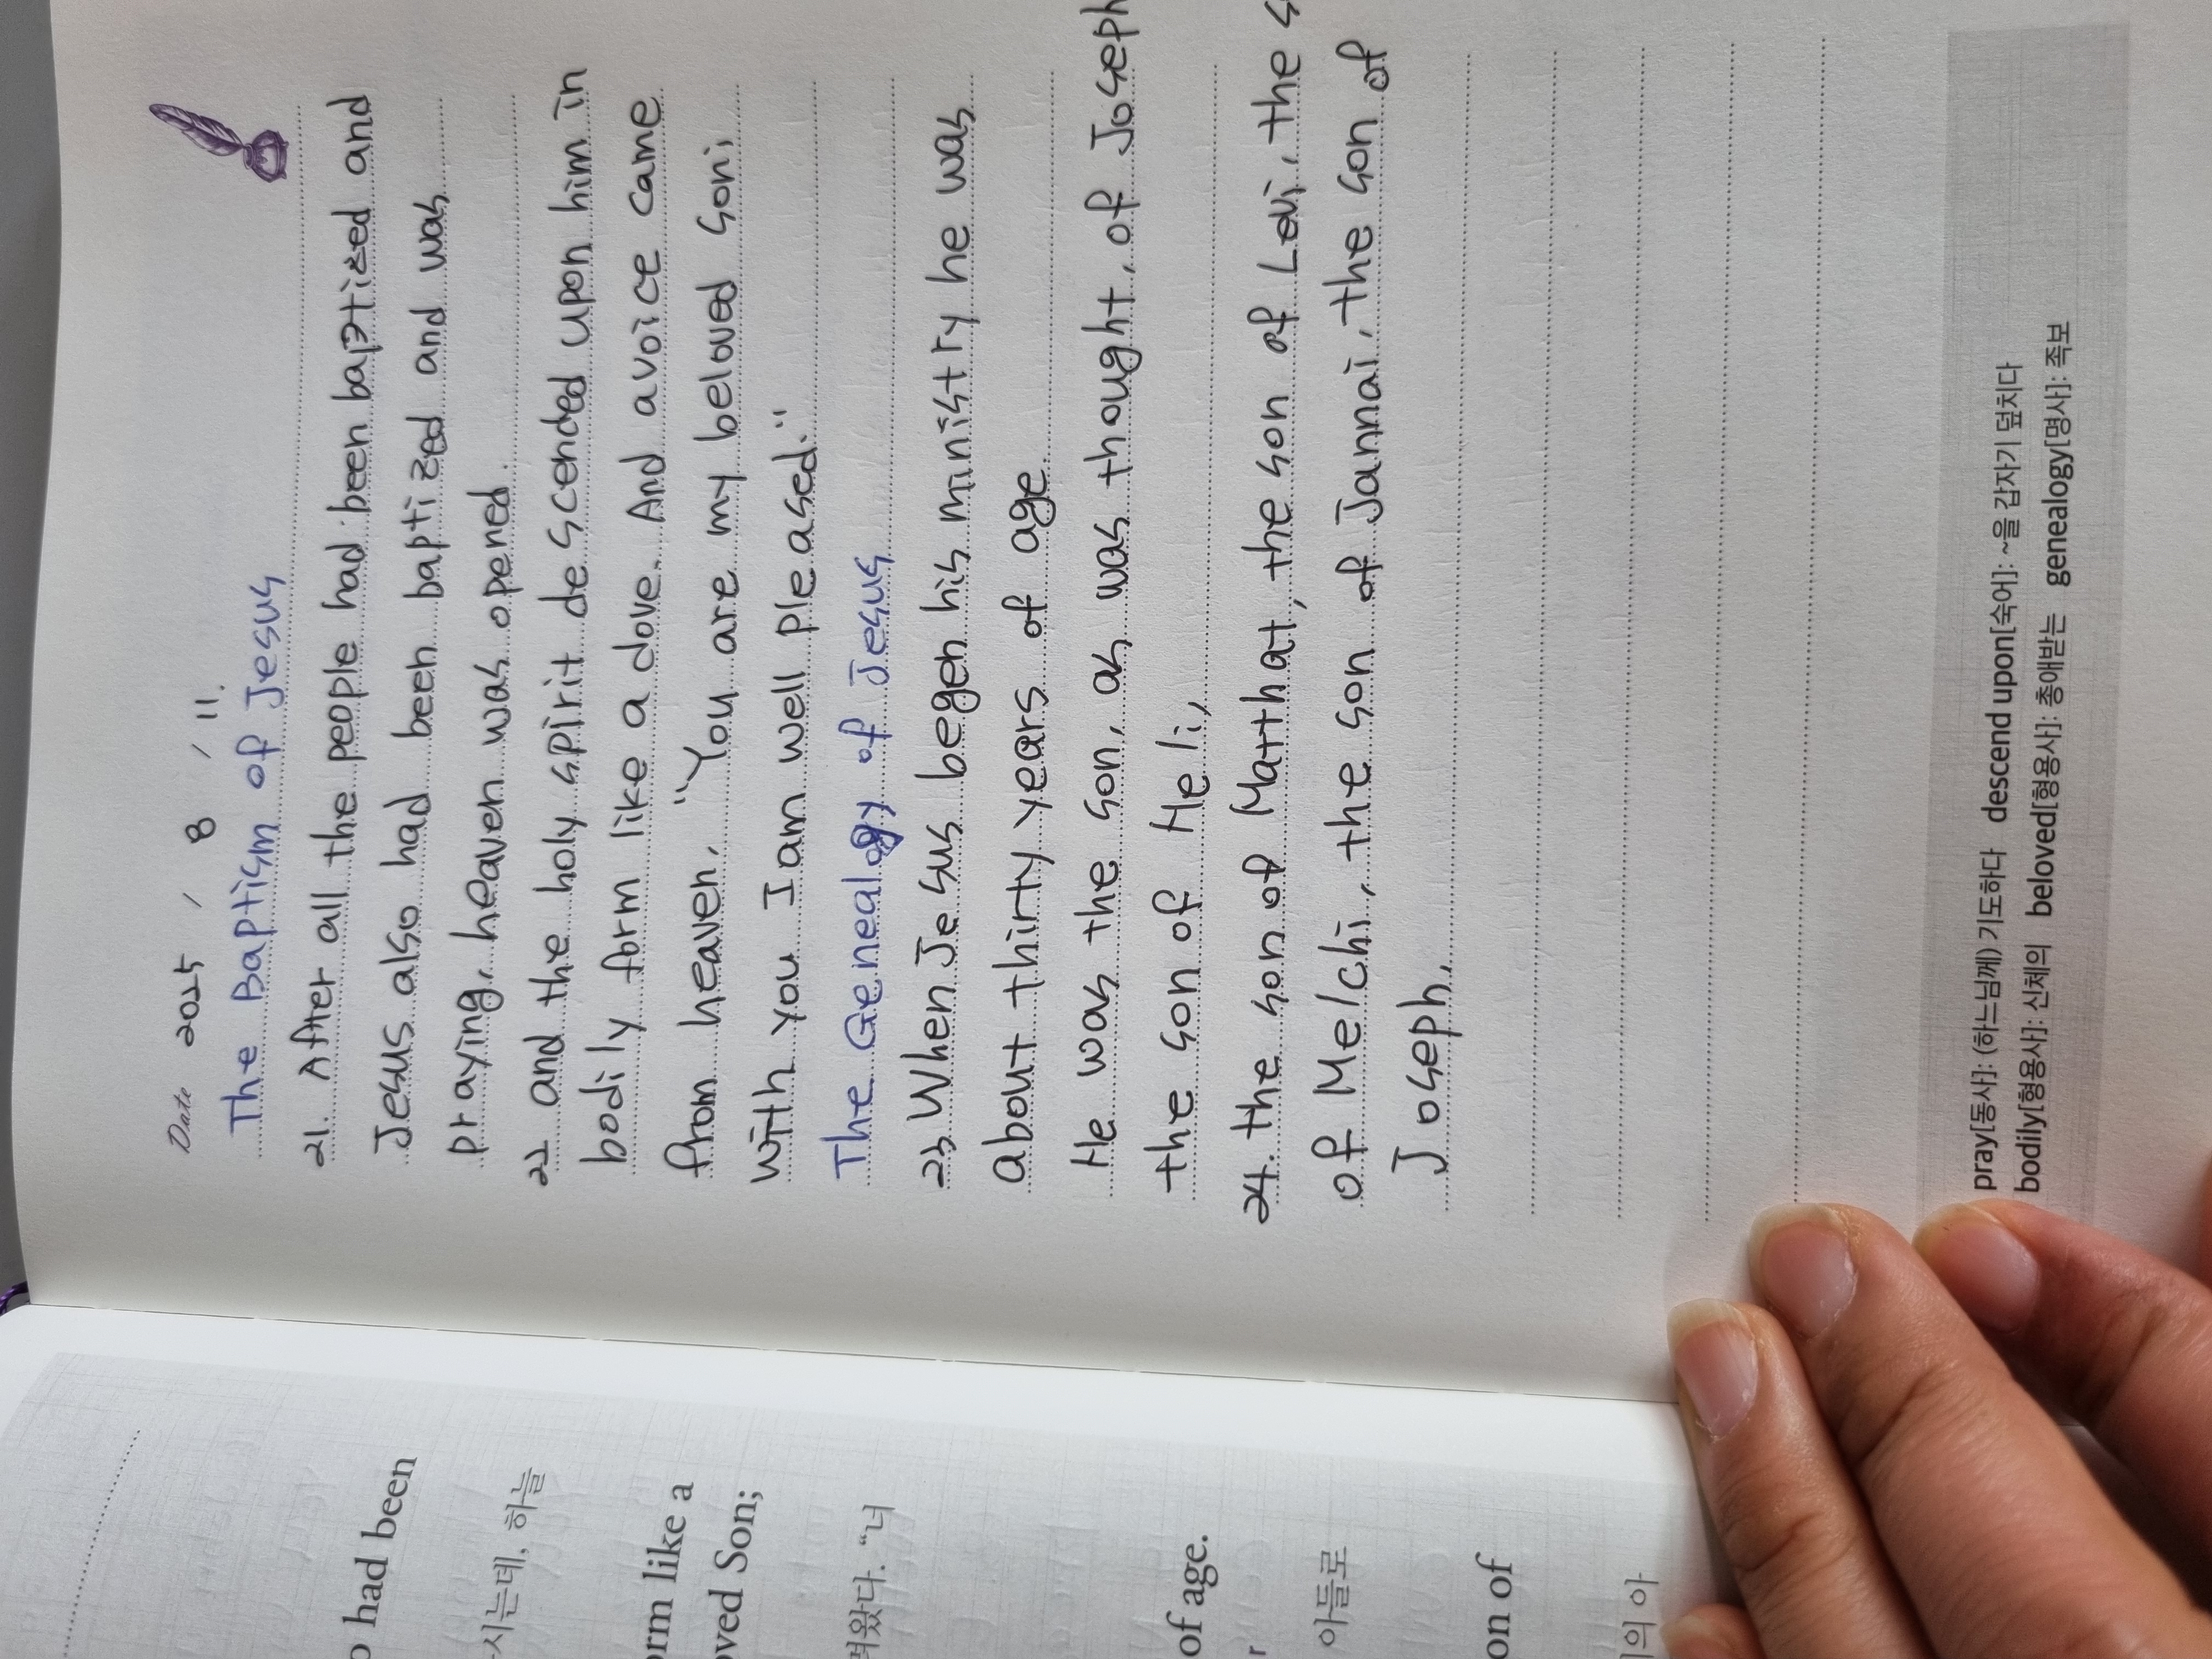 Date 2025 / 8 / 11.
The Baptism of Jesus
21. After all the people had been baptized and
Jesus also had been baptized and was
praying, heaven was opened.
22 and the holy spirit descended upon him in
bodily form like a dove. And a voice came
from heaven, "You are my beloved son;
with you I am well pleased."
The Genealogy of Jesus
23 When Jesus begen his ministry he was
about thirty years of age.
He was the son, as was thought, of Joseph
the son of Heli,
24. the son of Matthat, the son of Levi, the s
of Melchi, the son of Jannai, the son of
Joseph,
pray[동사]: (하느님께) 기도하다 descend upon[숙어]: ~을 갑자기 덮치다
bodily[형용사]: 신체의 beloved[형용사]: 총애받는 genealogy[명사]: 족보
had been
시는데, 하늘
orm like a
oved Son;
려왔다. "너
of age.
r
아들로
on of
의 아